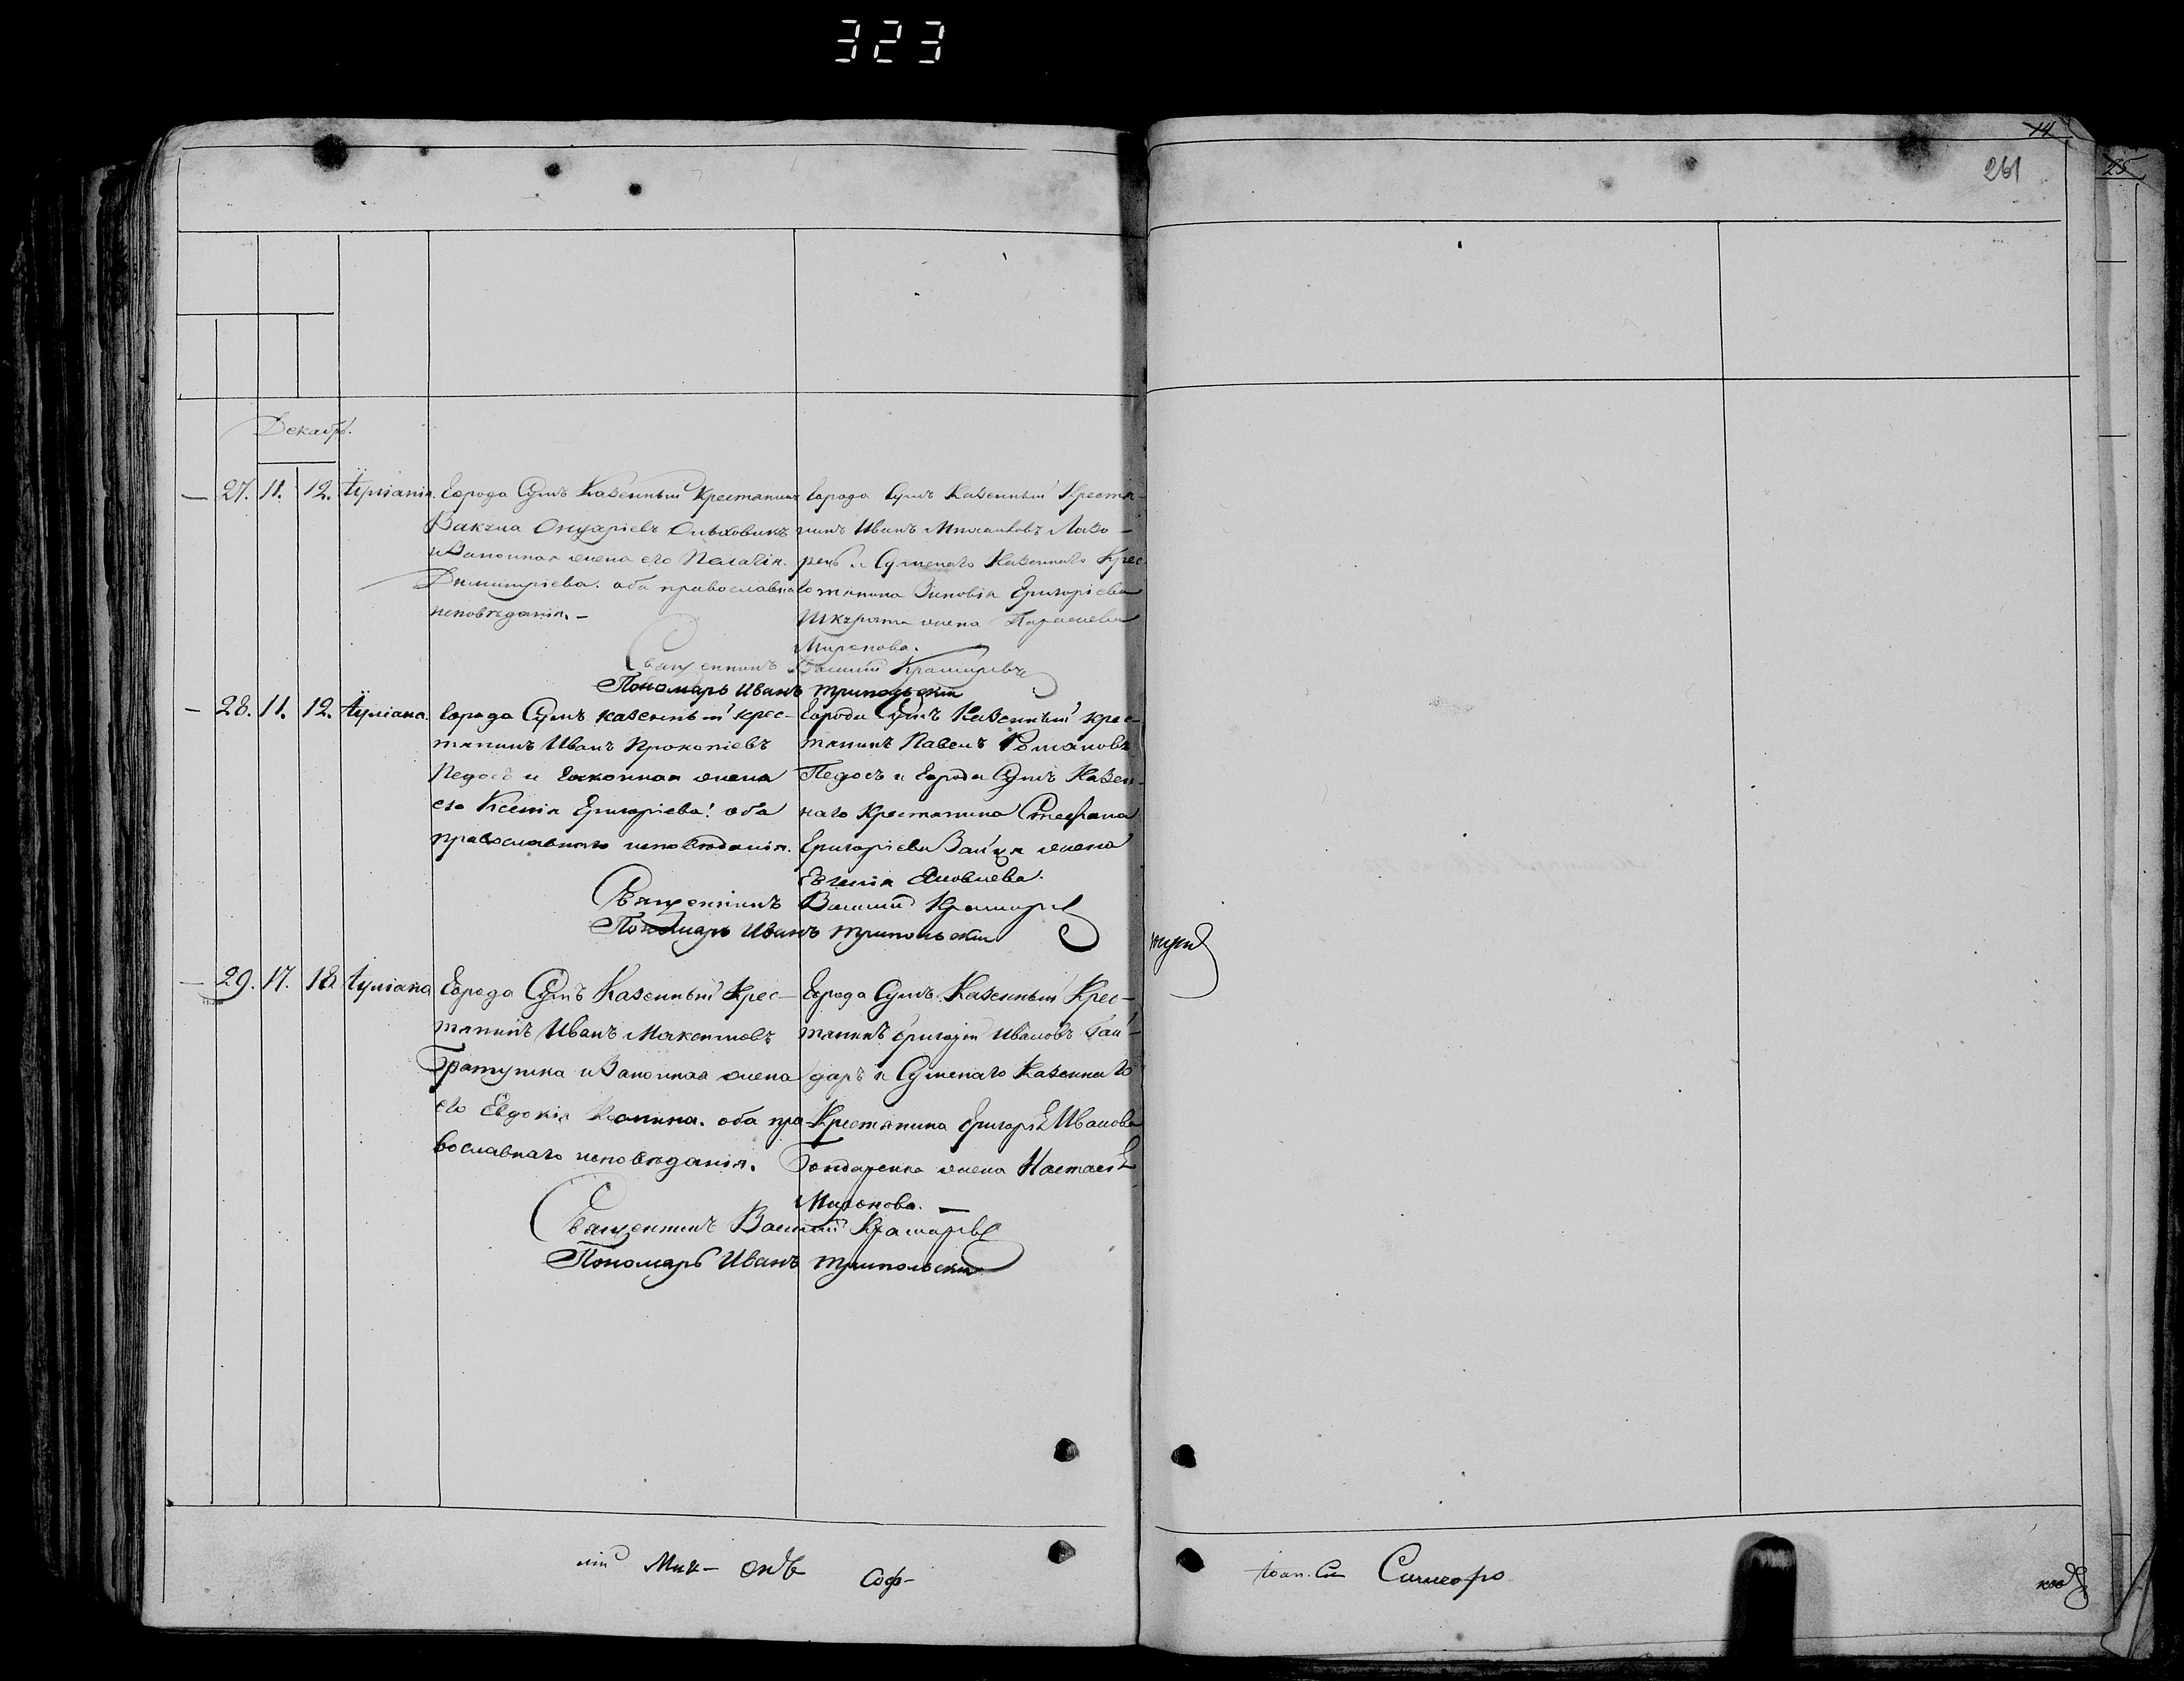 323
14
261
25
Декабрь.
27. 11. 12. Іуліанія.
Города Сумъ Казенный Крестянинъ
Вакула Онуфріевъ Ольховикъ
и Законная жена его Пелагія
Димитріева. оба православнаго
исповѣданія. –
Города Сумъ Казенный Крестя-
нинъ Иванъ Лазо-
рень и Сумскаго Казеннаго Крес-
тянина Зиновія Григоріева
Шкурата жена Параскева
Миронова.
Священникъ Василій Крамаревъ
Пономарь Иванъ Трипольскій
28. 11. 12. Іуліана.
Города Сумъ казенный крес-
тянинъ Иванъ Прокопіевъ
Педосъ и Законная жена
его Ксенія Григоріева. оба
православнаго исповѣданія.
Города Сумъ Казенный крес-
тянинъ Павелъ Романовъ
Педосъ и Города Сумъ Казен-
наго Крестянина Стефана
Григоріева Зайця жена
Евгенія Яковлева.
Священникъ Василій Крамаревъ
Пономарь Иванъ Трипольскій
29. 17. 18. Іуліана
Города Сумъ Казенный Крес-
тянинъ Иванъ Максимовъ
Братушка и Законная жена
его Евдокія оба пра-
вославнаго исповѣданія.
Города Сумъ Казенный Крес-
тянинъ Григорій Ивановъ Гай-
даръ и Сумскаго Казеннаго
Крестянина Григорія Иванова
Бондаренка жена Настасія
Миронова. –
Священникъ Василій Крамаревъ
Пономарь Иванъ Трипольскій
лій Мих- Соф-
Іоан. Симеоро